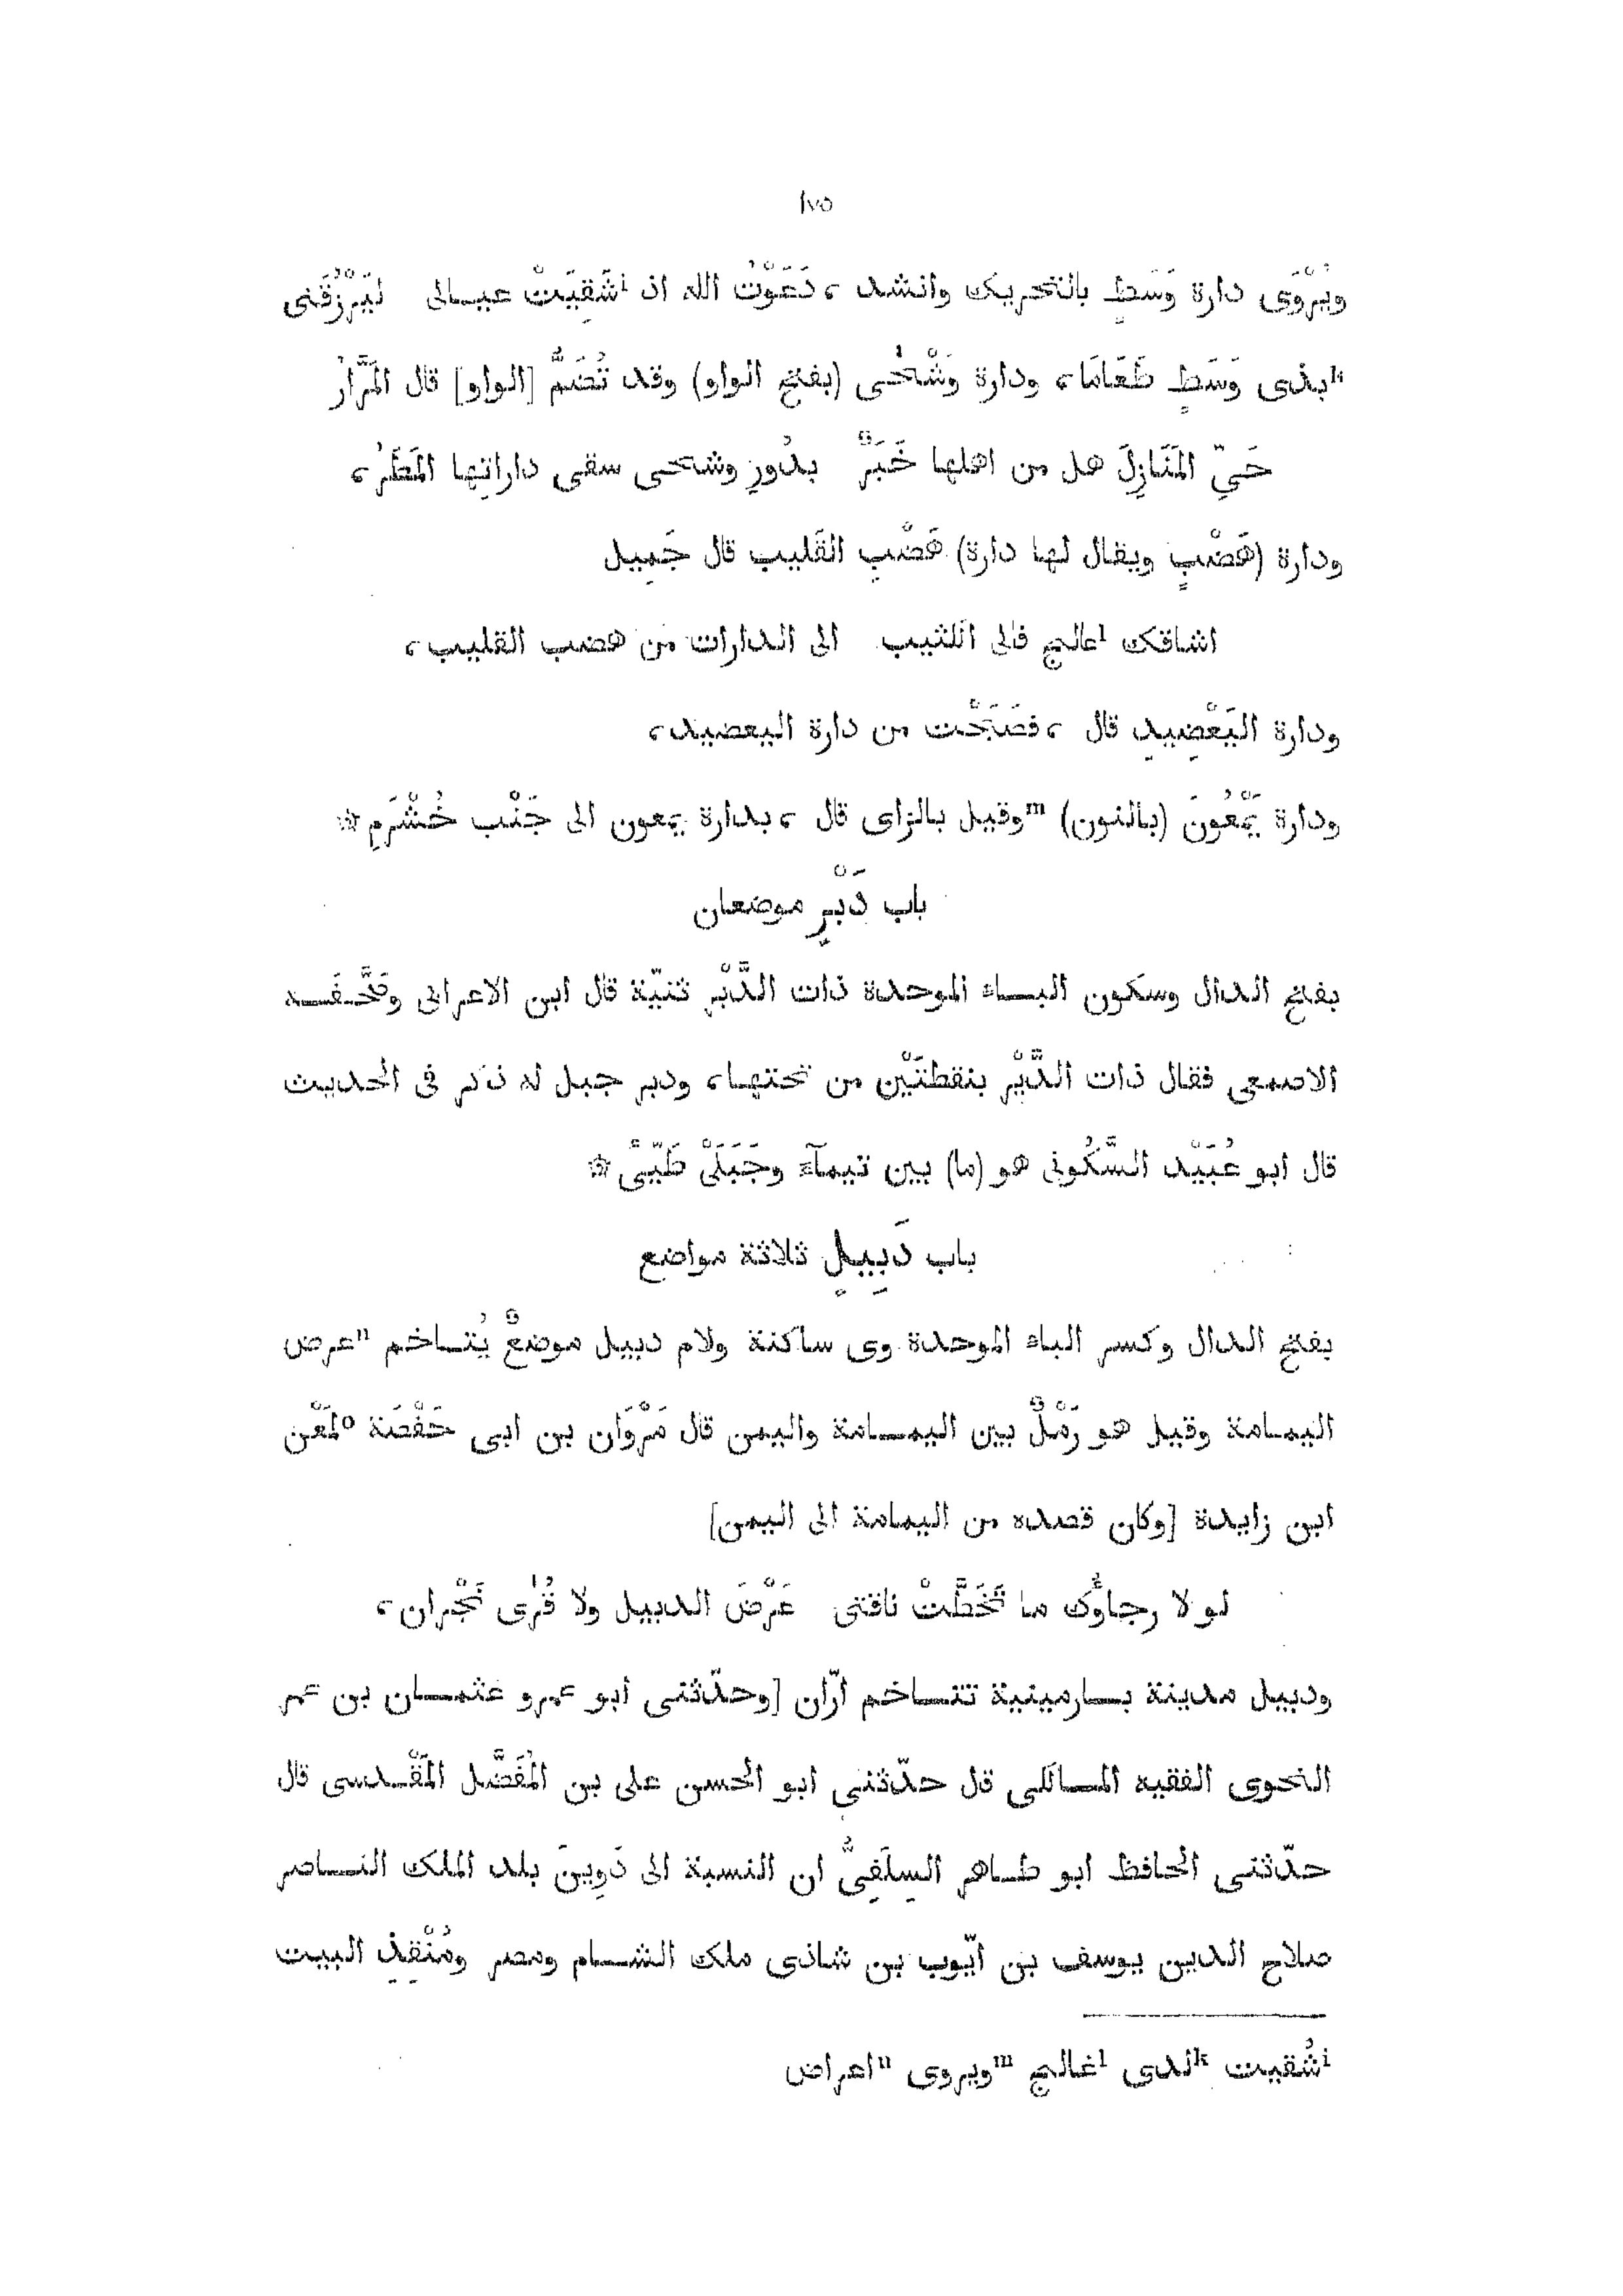 ١٧٥
ويُرْوَى دارة وَسَطٍ بالتحريك وانشد ، دَعَوْتُ الله اذ iشَقِيَتْ عيالى ليَرْزُقَنى
kبذى وَسَطٍ طَعَامَا، ودارة وَشْحَى (بفتح الواو) وقد تُضَمُّ [الواو] قال المَرَّارُ
حَىِّ المَنَازِلَ هل من اهلها خَبَرٌ بدُورِ وشحى سقى داراتِها المَطَرُ،
ودارة (هَضْبٍ ويقال لها دارة) هَضْبِ القَليب قال جَمِيل
اشاقك lعالج فالى الكثيب الى الدارات من هضب القليب،
ودارة اليَعْضِيدِ قال ، فصَبَحْت من دارة اليعضيد،
ودارة يَمْعُونَ (بالنون) mوقيل بالزاى قال ، بدارة يمعون الى جَنْب خُشْرَمِ ※
باب دَبْرٍ موضعان
بفتح الدال وسكون الباء الموحدة ذات الدَّبْرِ ثنيّة قال ابن الاعرابى وصَحَّفَه
الاصمعى فقال ذات الدَّيْر بنقطتَيْن من تحتها، ودبر جبل له ذكر فى الحديث
قال ابو عُبَيْد السَّكُونى هو (ما) بين تيمآء وجَبَلَىْ طَيِّئً ※
باب دَبِيلٍ ثلاثة مواضع
بفتح الدال وكسر الباء الموحدة وى ساكنة ولام دبيل موضعٌ يُتاخم nعرض
اليمامة وقيل هو رَمْلٌ بين اليمامة واليمن قال مَرْوَان بن ابى حَفْصَة oلمَعْن
ابن زايدة [وكان قصده من اليمامة الى اليمن]
لو لا رجاؤُك ما تَخَطَّتْ ناقتى عَرْضَ الدبيل ولا قُرَى نَجْران،
ودبيل مدينة بارمينية تتاخم ارّان [وحدّثنى ابو عمرو عثمان بن عمر
النحوى الفقيه المالكى قال حدّثنى ابو الحسن على بن المُفَضَّل المَقْدسى قال
حدّثنى الحافظ ابو طاهر السِلَفِىُّ ان النسبة الى دَوِينَ بلد الملك الناصر
صلاح الدين يوسف بن ايّوب بن شاذى ملك الشام ومصر ومُنْقِذِ البيت
iشُقيت kلدى lغالج mويروى nاعراض